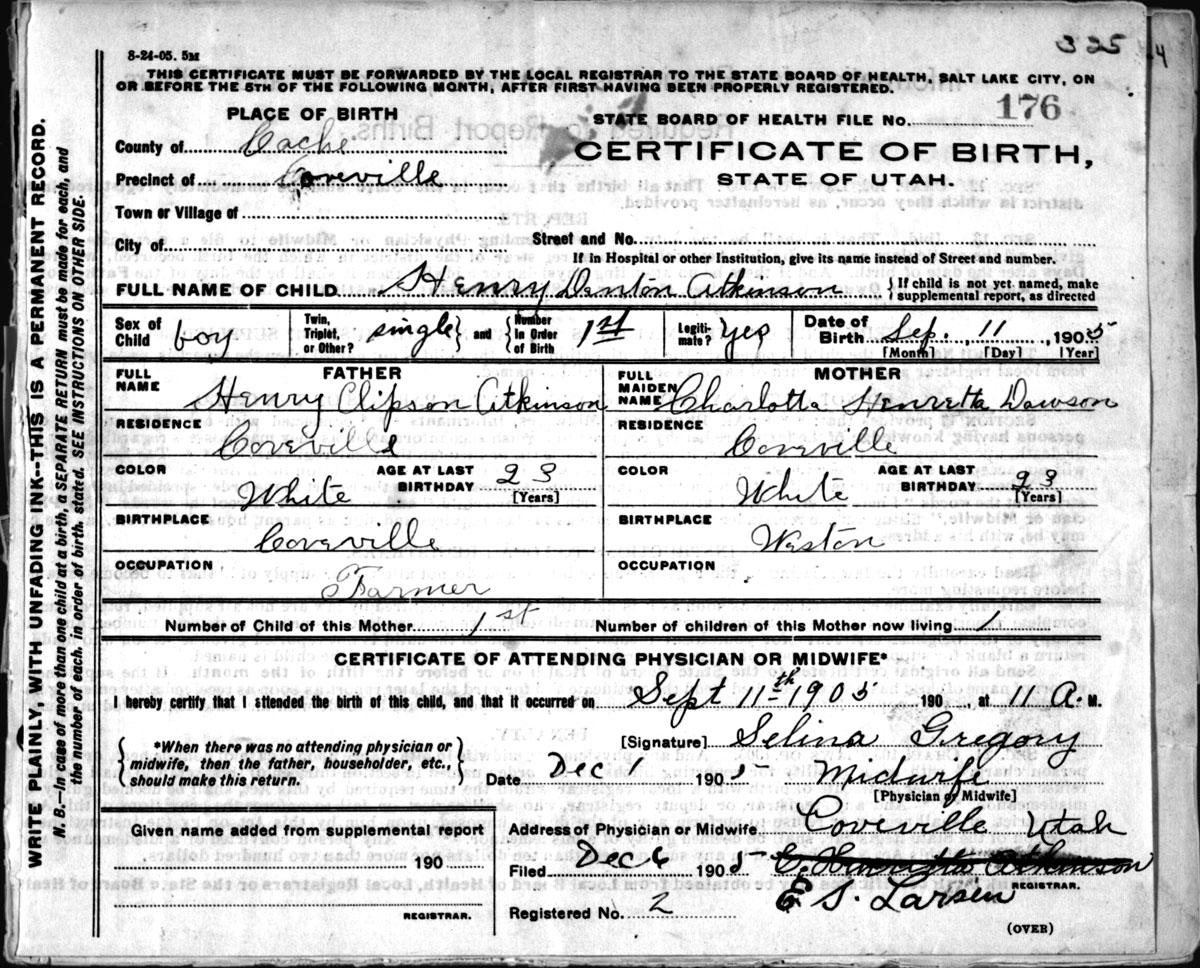 325
4
8-24-05. 5M
THIS CERTIFICATE MUST BE FORWARDED BY THE LOCAL REGISTRAR TO THE STATE BOARD OF HEALTH, SALT LAKE CITY, ON
OR BEFORE THE 5TH OF THE FOLLOWING MONTH, AFTER FIRST HAVING BEEN PROPERLY REGISTERED.
WRITE PLAINLY, WITH UNFADING INK--THIS IS A PERMANENT RECORD.
N. B.—In case of more than one child at a birth, a SEPARATE RETURN must be made for each, and
the number of each, in order of birth, stated. SEE INSTRUCTIONS ON OTHER SIDE.
PLACE OF BIRTH
County of Cache
Precinct of Coveville
Town or Village of
City of
STATE BOARD OF HEALTH FILE NO. 176
CERTIFICATE OF BIRTH,
STATE OF UTAH.
Street and No.
If in Hospital or other Institution, give its name instead of Street and number.
FULL NAME OF CHILD Henry Denton Atkinson { If child is not yet named, make
supplemental report, as directed
Sex of Child boy
Twin, Triplet, or Other? single } and { Number in Order of Birth 1st
Legitimate? Yes
Date of Birth Sep. 11, 1905
[Month] [Day] [Year]
FATHER
FULL NAME Henry Clipson Atkinson
RESIDENCE Coveville
COLOR White AGE AT LAST BIRTHDAY 23 [Years]
BIRTHPLACE Coveville
OCCUPATION Farmer
MOTHER
FULL MAIDEN NAME Charlotta Henretta Dawson
RESIDENCE Coveville
COLOR White AGE AT LAST BIRTHDAY 23 [Years]
BIRTHPLACE Weston
OCCUPATION
Number of Child of this Mother 1st Number of children of this Mother now living 1
CERTIFICATE OF ATTENDING PHYSICIAN OR MIDWIFE*
I hereby certify that I attended the birth of this child, and that it occurred on Sept 11th 1905 190 , at 11 A. M.
{ *When there was no attending physician or
midwife, then the father, householder, etc.,
should make this return. }
[Signature] Selina Gregory
Date Dec 1 1905 Midwife
[Physician or Midwife]
Given name added from supplemental report
190
REGISTRAR.
Address of Physician or Midwife Coveville Utah
Filed Dec 6 1905 Atkinson
E S. Larsen REGISTRAR.
Registered No. 2
(OVER)